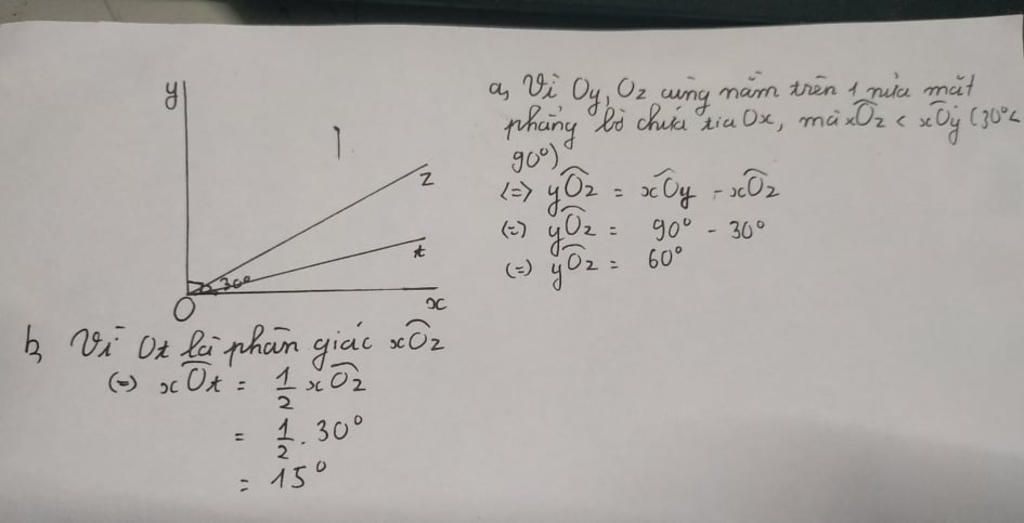 y
1
z
t
30°
x
O
a, Vì Oy, Oz cùng nằm trên 1 nửa mặt
phẳng bờ chứa tia Ox, mà xÔz < xÔy (30°<
90°)
(=) yÔz = xÔy - xÔz
(=) yÔz = 90° - 30°
(=) yÔz = 60°
b, Vì Ot là phân giác xÔz
(=) xÔt = 1/2 xÔz
= 1/2 . 30°
= 15°